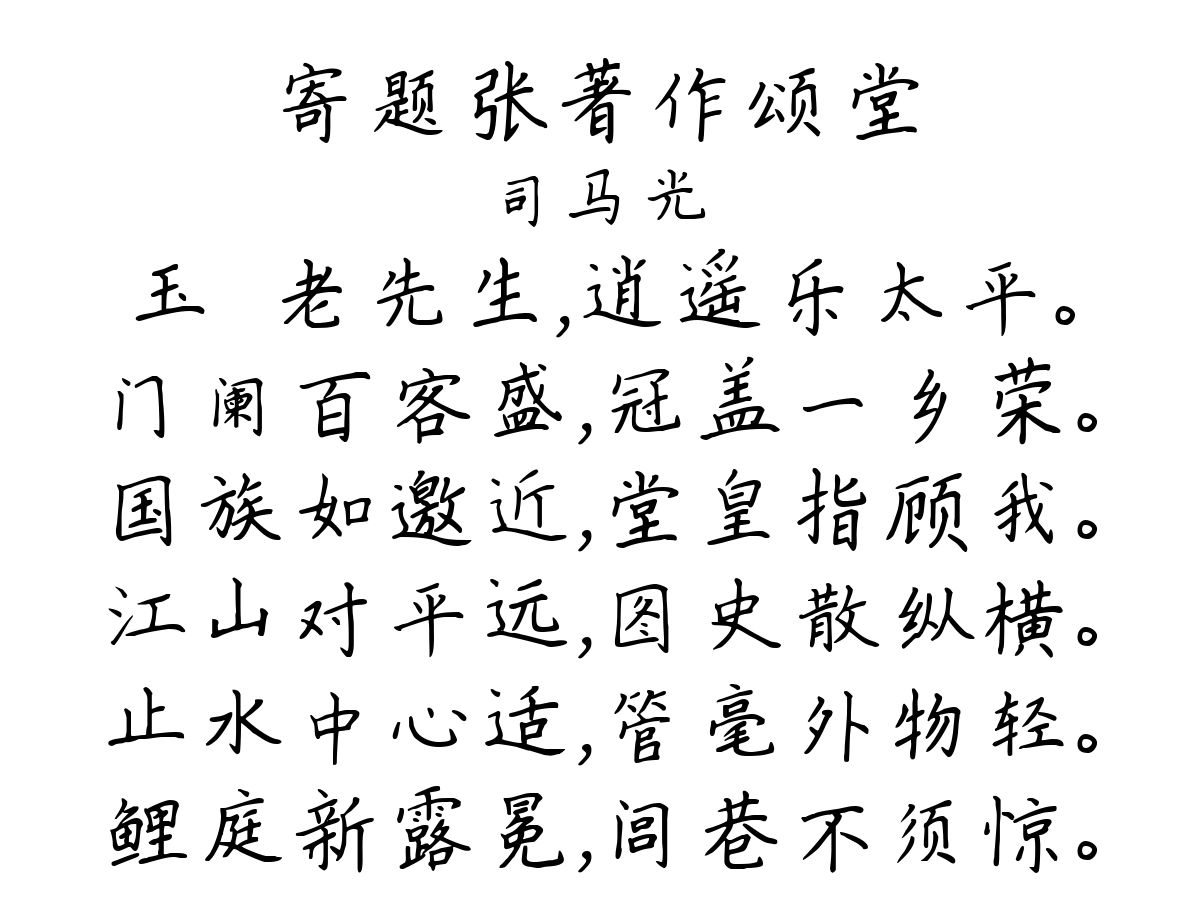 寄题张著作颂堂
司马光
玉 老先生,逍遥乐太平。
门阑百客盛,冠盖一乡荣。
国族如邀近,堂皇指顾我。
江山对平远,图史散纵横。
止水中心适,管毫外物轻。
鲤庭新露冕,闾巷不须惊。